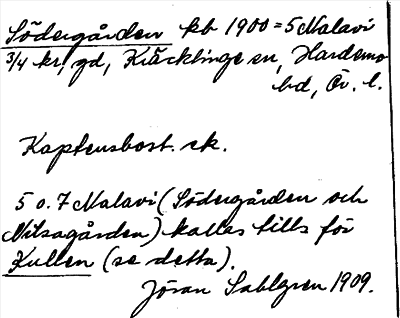 Södergården kb 1900 = 5 Malavi
3/4 kr, gd, Kräcklinge sn, Hardemo
hd, Ör. l.
Kaptensbost. sk.
5 o. 7 Malavi (Södergården och
Nilsagården) kallas tills för
Kullen (se detta).
Jöran Sahlgren 1909.